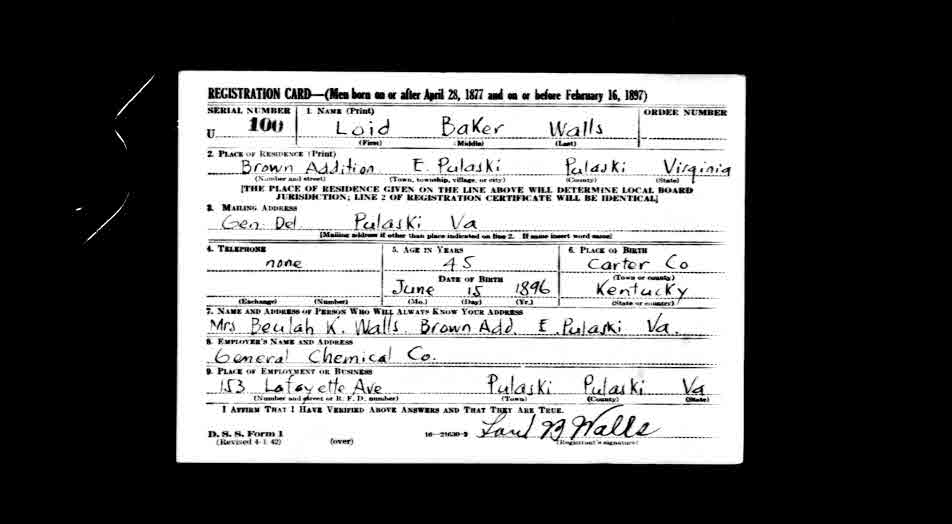 REGISTRATION CARD—(Men born on or after April 28, 1877 and on or before February 16, 1897)
SERIAL NUMBER 1. NAME (Print) ORDER NUMBER
U 100 Loid Baker Walls
(First) (Middle) (Last)
2. PLACE OF RESIDENCE (Print)
Brown Addition E. Pulaski Pulaski Virginia
(Number and street) (Town, township, village, or city) (County) (State)
[THE PLACE OF RESIDENCE GIVEN ON THE LINE ABOVE WILL DETERMINE LOCAL BOARD
JURISDICTION; LINE 2 OF REGISTRATION CERTIFICATE WILL BE IDENTICAL]
3. MAILING ADDRESS
Gen. Del. Pulaski Va
[Mailing address if other than place indicated on line 2. If same insert word same]
4. TELEPHONE 5. AGE IN YEARS 6. PLACE OF BIRTH
none 45 Carter Co
DATE OF BIRTH (Town or county)
June 15 1896 Kentucky
(Exchange) (Number) (Mo.) (Day) (Yr.) (State or country)
7. NAME AND ADDRESS OF PERSON WHO WILL ALWAYS KNOW YOUR ADDRESS
Mrs Beulah K. Walls Brown Add. E. Pulaski Va.
8. EMPLOYER'S NAME AND ADDRESS
General Chemical Co.
9. PLACE OF EMPLOYMENT OR BUSINESS
153 Lafayette Ave Pulaski Pulaski Va
(Number and street or R. F. D. number) (Town) (County) (State)
I AFFIRM THAT I HAVE VERIFIED ABOVE ANSWERS AND THAT THEY ARE TRUE.
D. S. S. Form 1 16—21630-2 B Walls
(Revised 4-1-42) (over) (Registrant's signature)